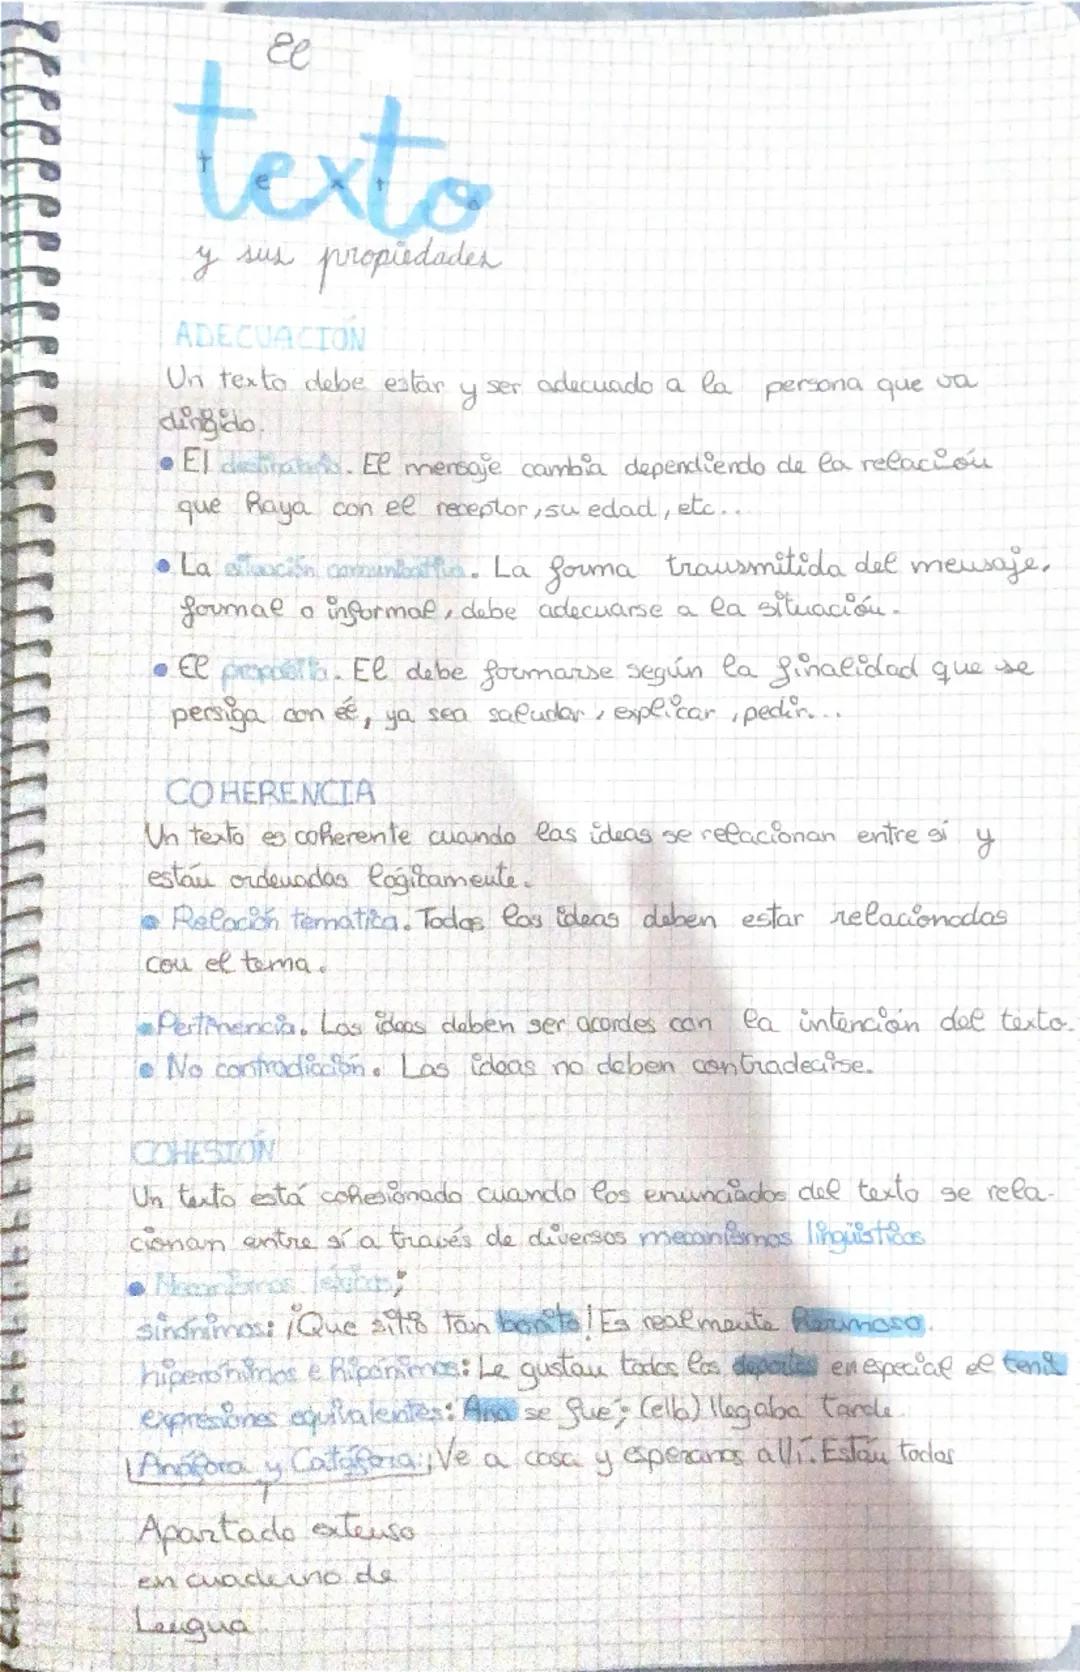 El
texto
t e x t o
y sus propiedades
ADECUACIÓN
Un texto debe estar y ser adecuado a la persona que va
dirigido.
• El destinatario. El mensaje cambia dependiendo de la relación
que haya con el receptor, su edad, etc...
• La situación comunicativa. La forma transmitida del mensaje,
formal o informal, debe adecuarse a la situación.
• El propósito. El debe formarse según la finalidad que se
persiga con él, ya sea saludar, explicar, pedir...
COHERENCIA
Un texto es coherente cuando las ideas se relacionan entre sí y
están ordenadas lógicamente.
• Relación temática. Todas las ideas deben estar relacionadas
con el tema.
• Pertinencia. Las ideas deben ser acordes con la intención del texto.
• No contradicción. Las ideas no deben contradecirse.
COHESIÓN
Un texto está cohesionado cuando los enunciados del texto se rela-
cionan entre sí a través de diversos mecanismos lingüísticos
• Mecanismos léxicos;
sinónimos: ¡Que sitio tan bonito! Es realmente hermoso.
hiperónimos e hipónimos: Le gustan todos los deportes en especial el tenis
expresiones equivalentes: Ana se fue; (ella) llegaba tarde.
Anáfora y Catáfora: Ve a casa y esperanos allí. Están todos
Apartado extenso
en cuaderno de
Lengua